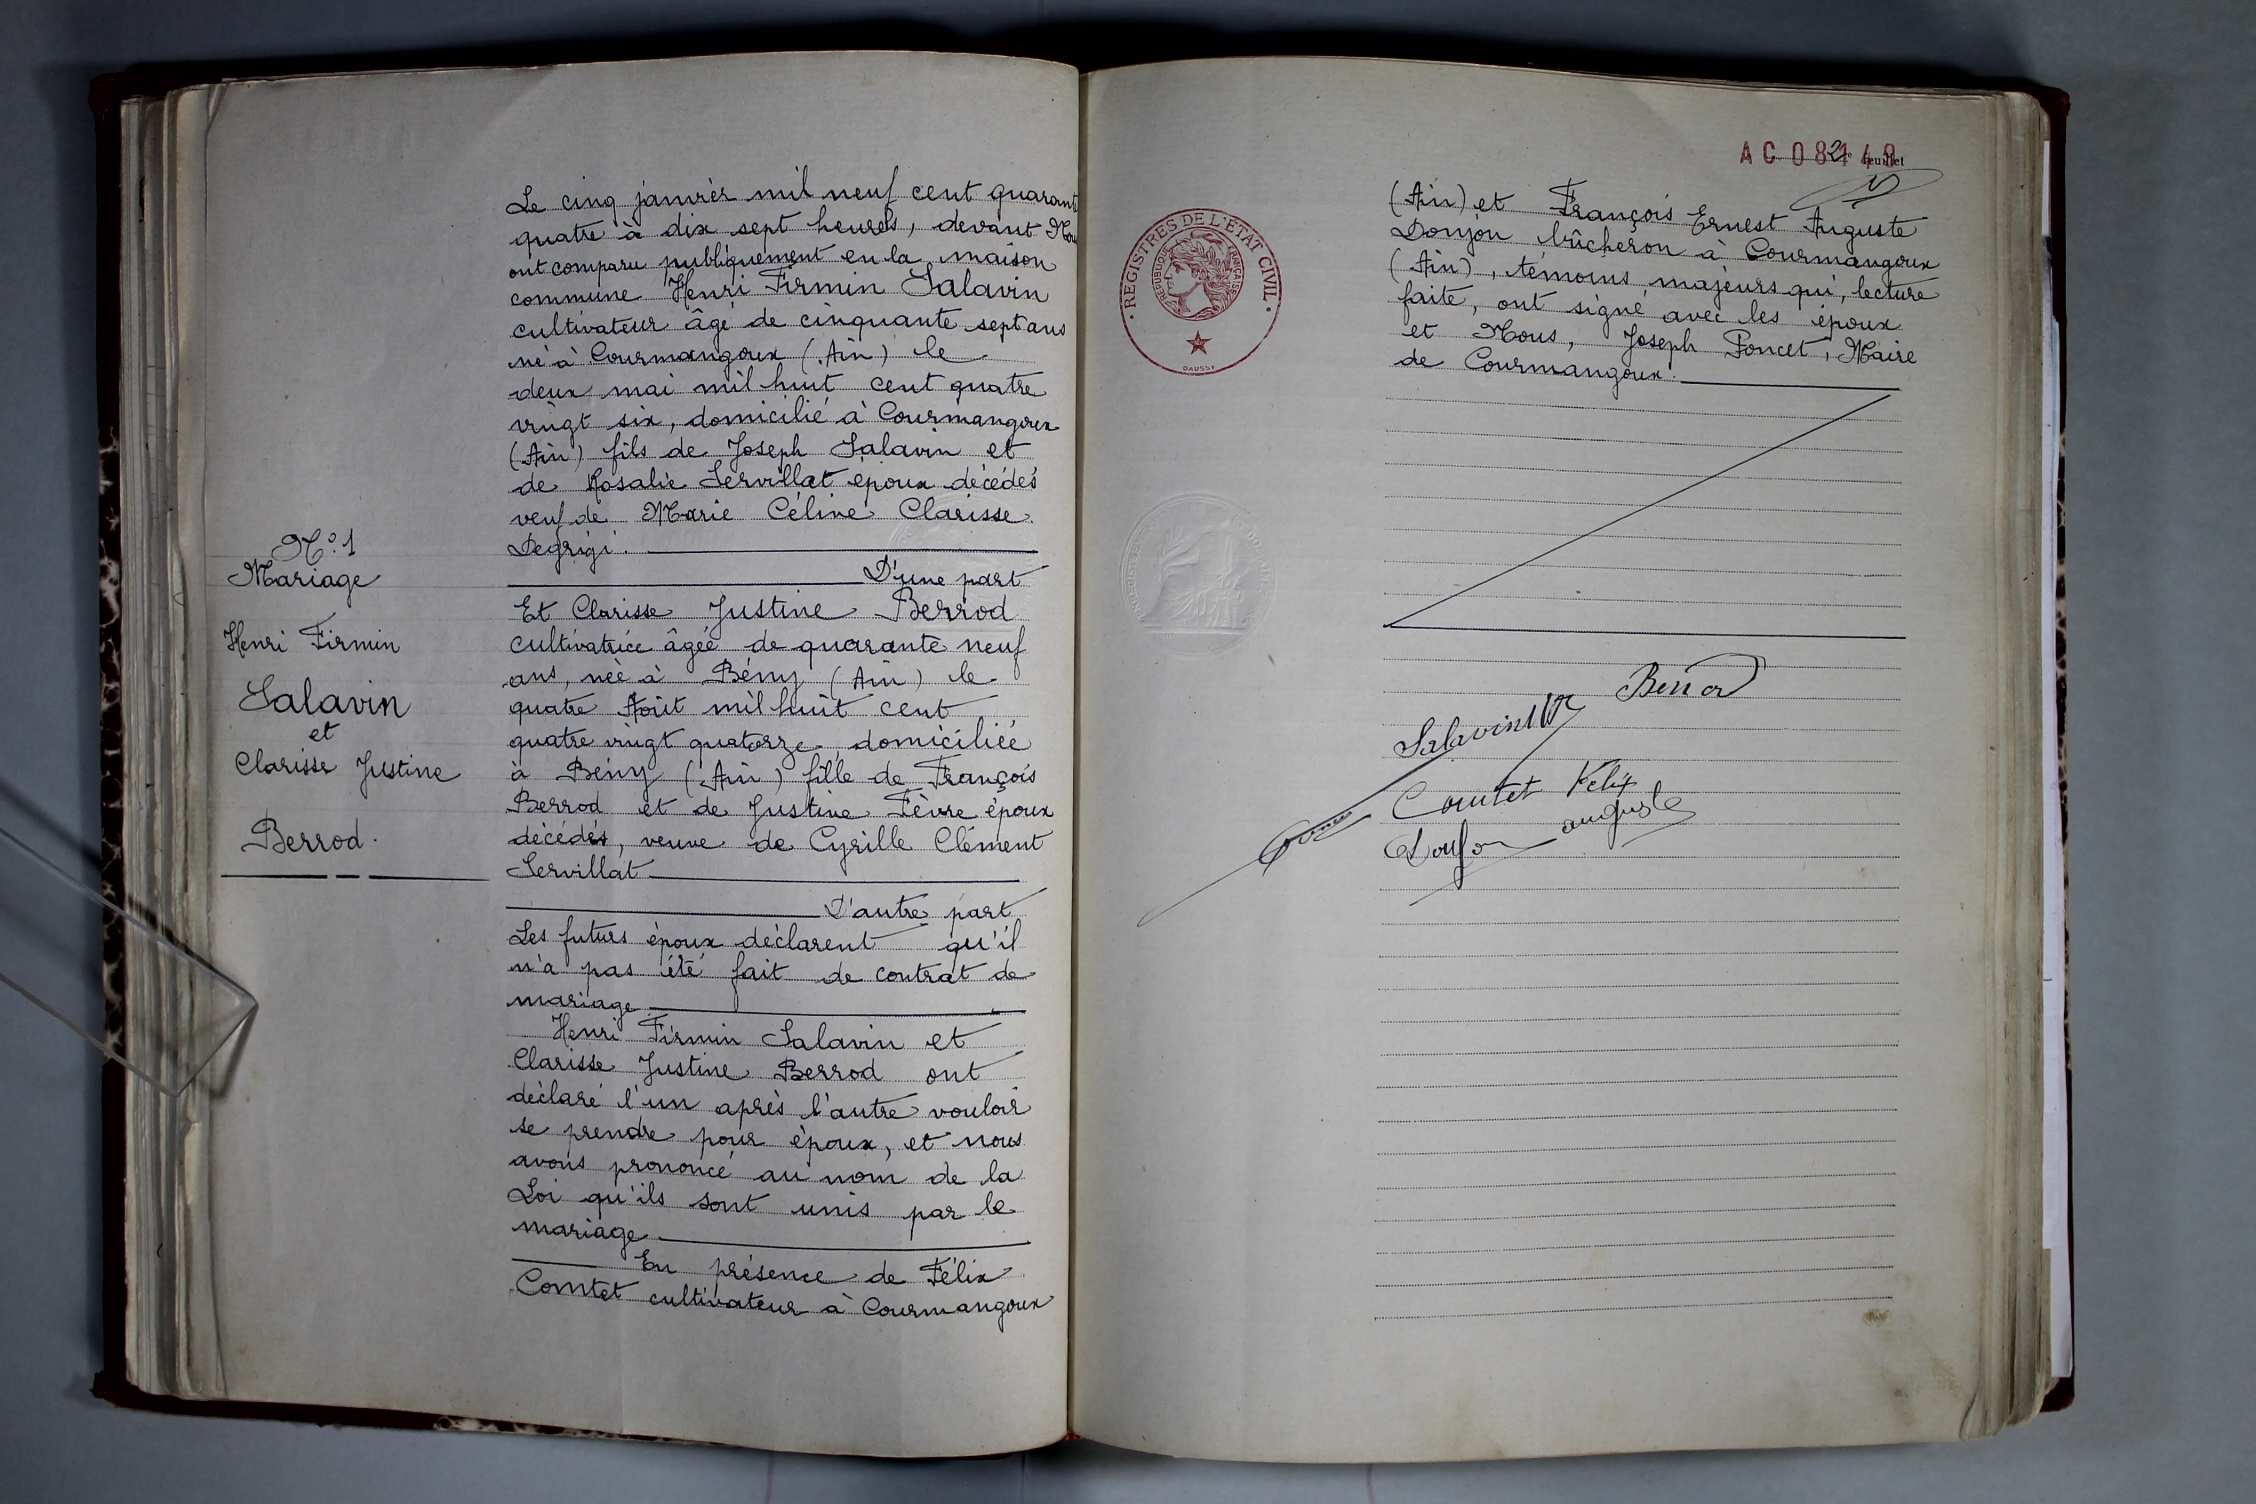 N°. 1
Mariage
Henri Firmin
Salavin
et
Clarisse Justine
Berrod.
Le cinq janvier mil neuf cent quarante
quatre à dix sept heures, devant Nous
ont comparu publiquement en la maison
commune Henri Firmin Salavin
cultivateur âgé de cinquante sept ans
né à Courmangoux (Ain) le
deux mai mil huit cent quatre
vingt six, domicilié à Courmangoux
(Ain) fils de Joseph Salavin et
de Rosalie Servillat époux décédés
veuf de Marie Céline Clarisse
D'une part
Et Clarisse Justine Berrod
cultivatrice âgée de quarante neuf
ans, née à Bény (Ain) le
quatre Août mil huit cent
quatre vingt quatorze domiciliée
à Bény (Ain) fille de François
Berrod et de Justine Fèvre époux
décédés, veuve de Cyrille Clément
Servillat
D'autre part
Les futurs époux déclarent qu'il
n'a pas été fait de contrat de
mariage
Henri Firmin Salavin et
Clarisse Justine Berrod ont
déclaré l'un après l'autre vouloir
se prendre pour époux, et nous
avons prononcé au nom de la
Loi qu'ils sont unis par le
mariage
En présence de Félix
Comtet cultivateur à Courmangoux
2e feuillet
(Ain) et François Ernest Auguste
Donjon bûcheron à Courmangoux
(Ain), témoins majeurs qui, lecture
faite, ont signé avec les époux
et Nous, Joseph Poncet, Maire
de Courmangoux.
REGISTRES DE L'ÉTAT CIVIL
REPUBLIQUE FRANÇAISE
Berrod
Salavin
Comtet Felix
Donjon auguste